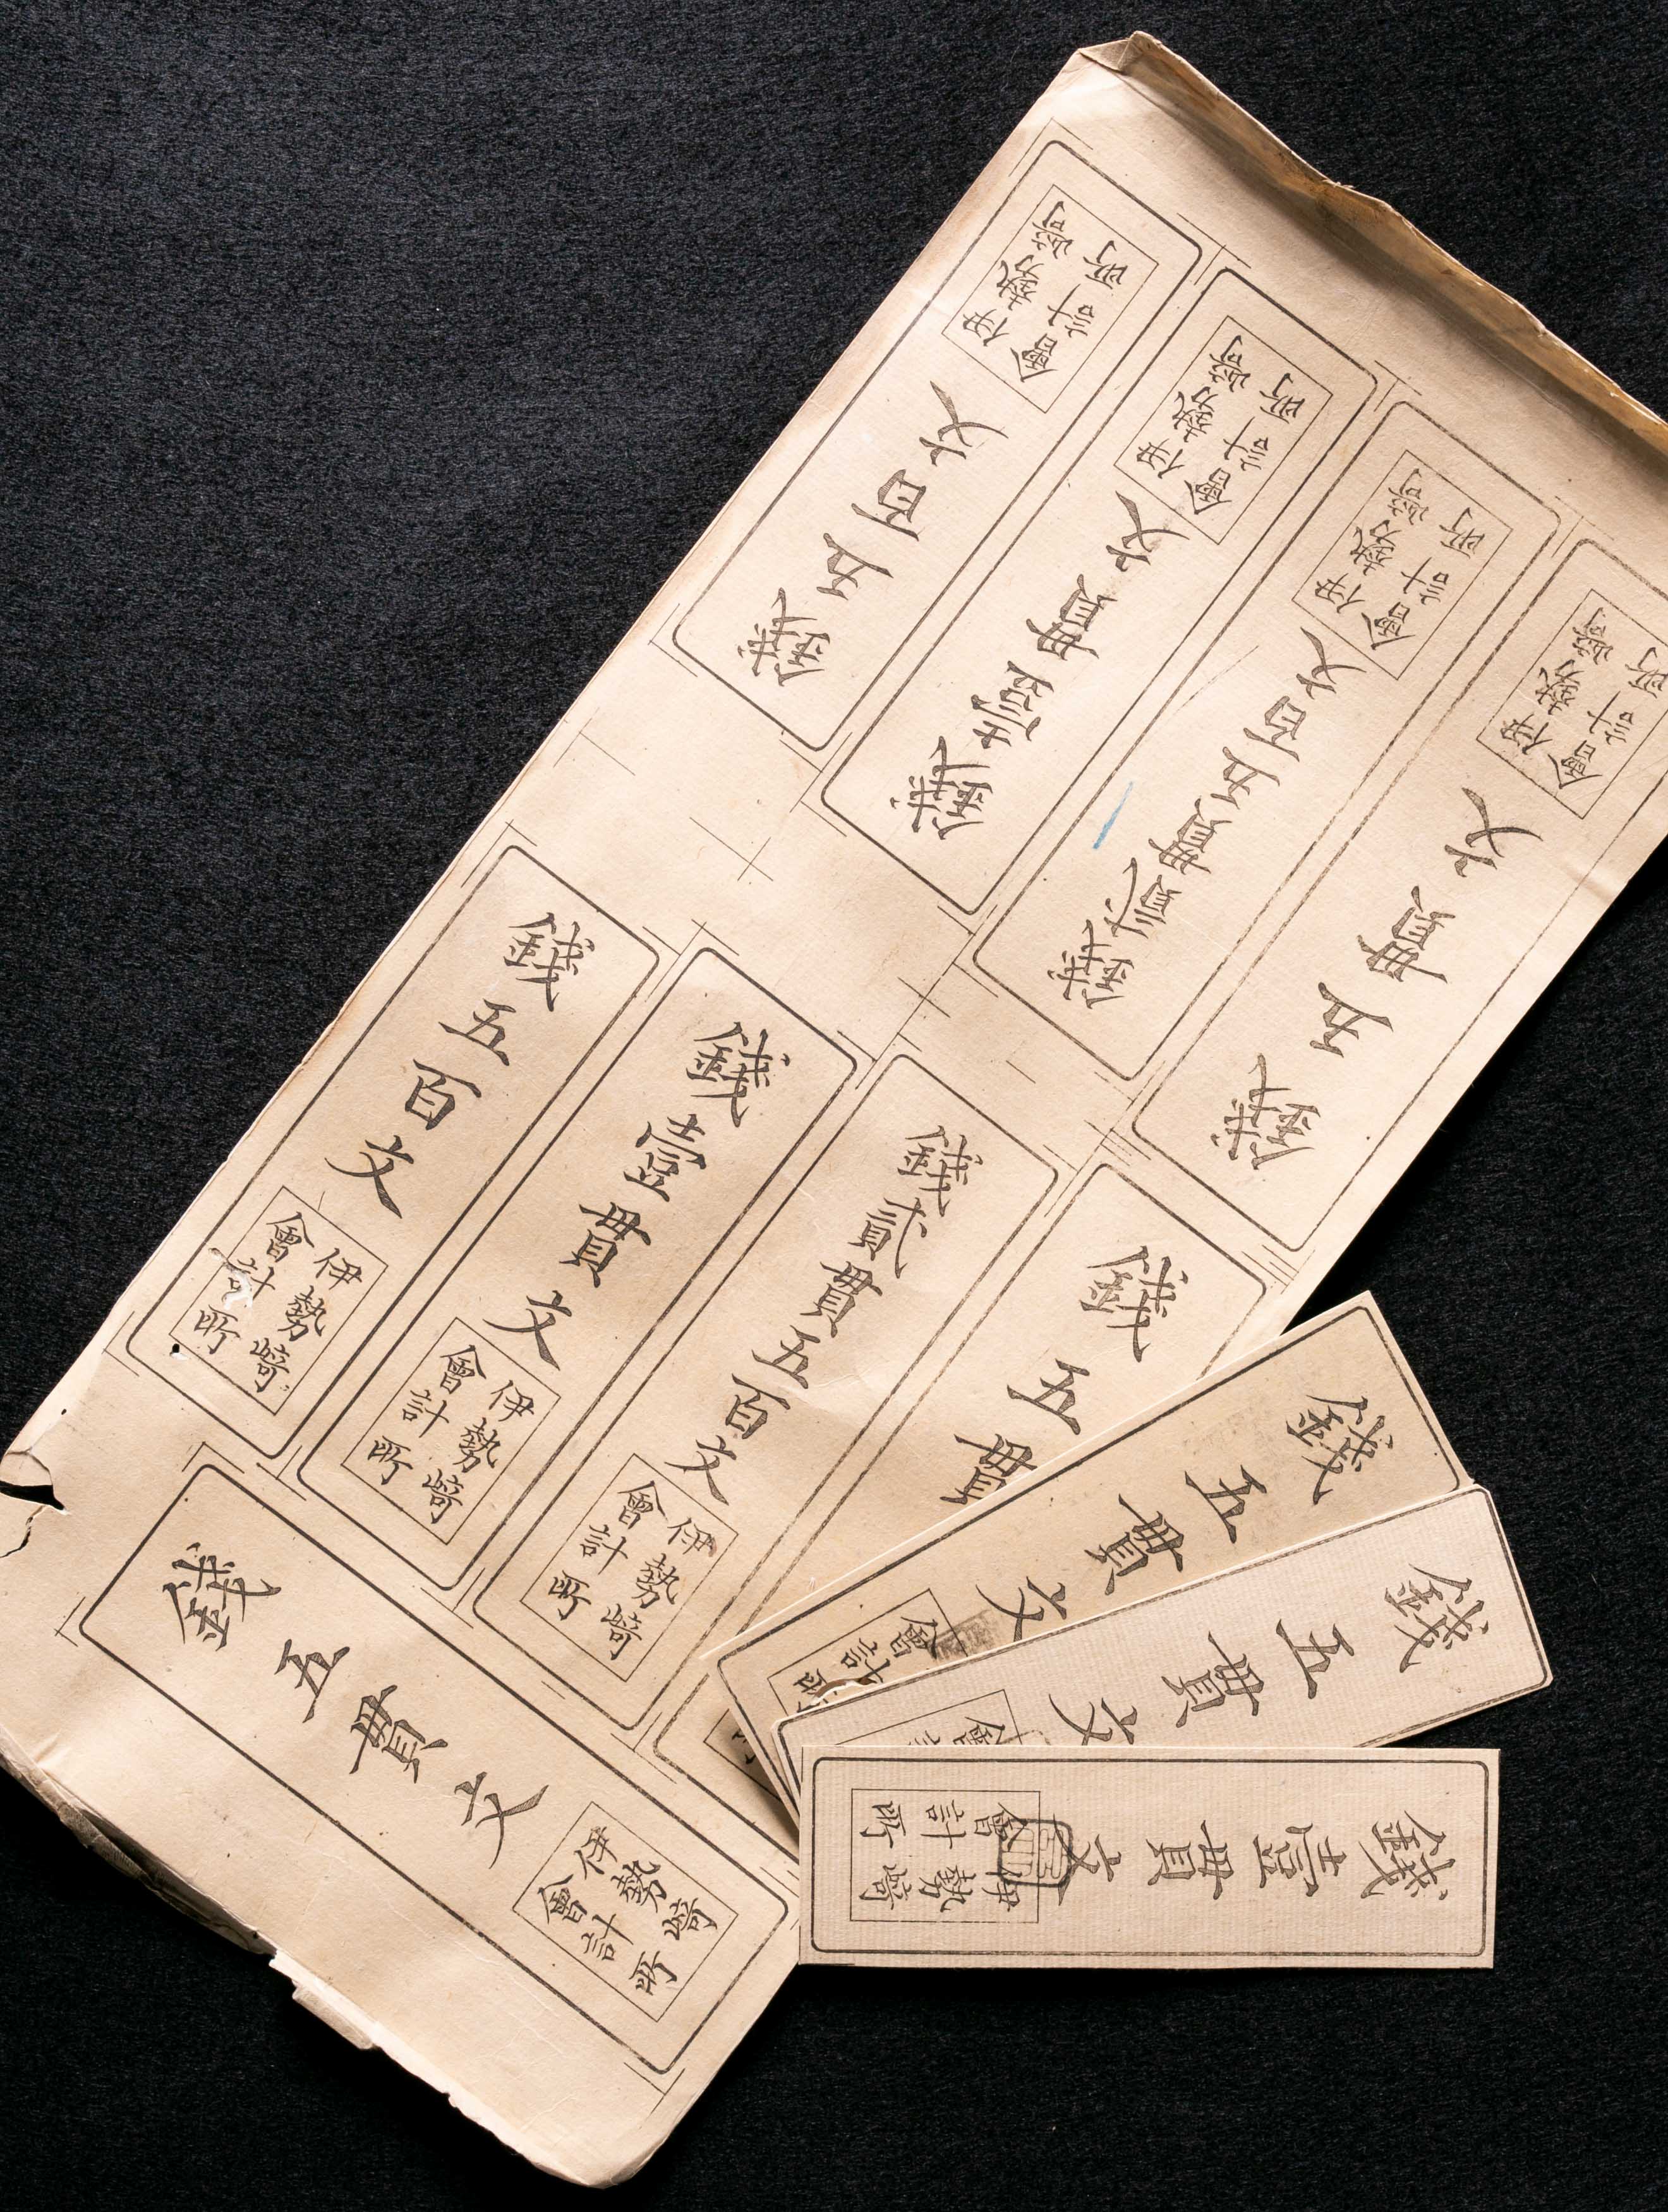 錢五百文
伊勢﨑
會計所
錢壹貫文
伊勢﨑
會計所
錢貳貫五百文
伊勢﨑
會計所
錢五貫文
伊勢﨑
會計所
錢五百文
伊勢﨑
會計所
錢壹貫文
伊勢﨑
會計所
錢貳貫五百文
伊勢﨑
會計所
錢五貫
錢五貫文
伊勢﨑
會計所
錢五貫文
會計所
錢五貫文
會計
錢壹貫文
伊勢﨑
會計所